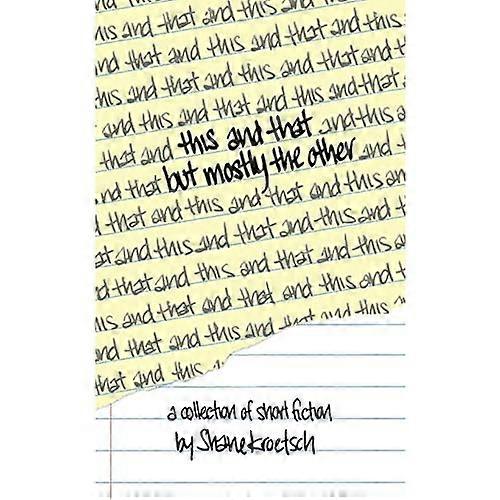 his and that and this and that and this
and that and this and that and this
and that and this and that and t
his and that and this and that and this and that
and this and that and this and that
that and this and that and this a
but mostly the other and t
nd that
d that and this and that and this an
at and this and that and this and t
d that and this and that and this a
his and that and this and that and this
is and that and this and that and this and t
nd that and this and that and this
that and this
a collection of short fiction
by Shane Kroetsch